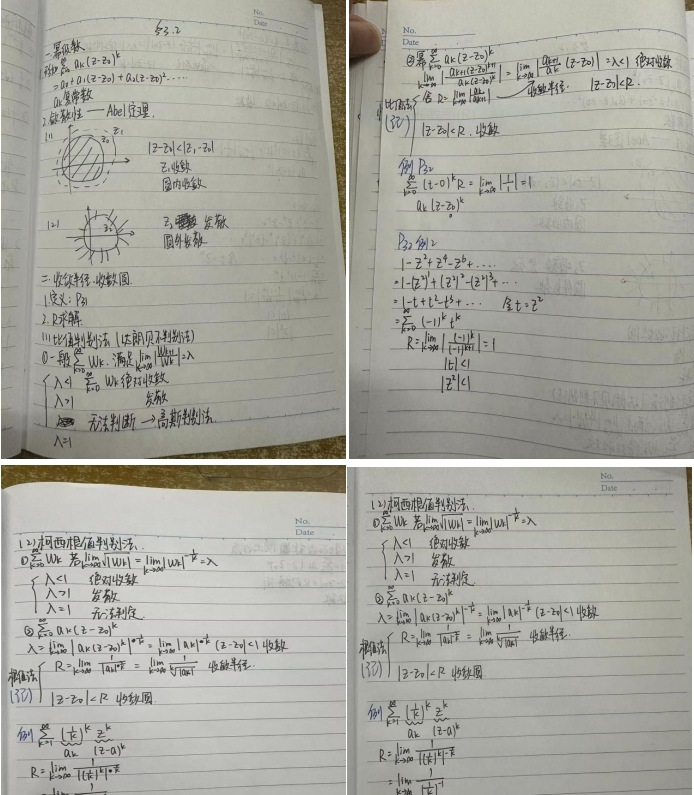 No.
Date
§3.2
一.幂级数
1.形如 ∑_{k=0}^{∞} ak(z-z0)^k
= a0 + a1(z-z0) + a2(z-z0)^2 ....
ak 复常数
2.敛散性 —— Abel定理.
(1)
z0
z1
|z-z0|<|z1-z0|
z1收敛
圆内收敛
(2)
z2 发散
圆外发散
二.收敛半径.收敛圆.
1.定义: P31
2.R求解.
(1)比值判别法 (达朗贝尔判别法)
①一般 ∑_{k=0}^{∞} Wk. 满足 lim_{k→∞} |W_{k+1}/Wk| = λ
λ<1 ∑_{k=0}^{∞} Wk 绝对收敛
λ>1 发散
无法判断 → 高斯判别法.
λ=1
No.
Date
②幂 ∑_{k=0}^{∞} ak(z-z0)^k
lim_{k→∞} |a_{k+1}(z-z0)^{k+1}/ak(z-z0)^k| = lim_{k→∞} |a_{k+1}/ak (z-z0)| = λ<1 绝对收敛
比值法 含 R = lim_{k→∞} |ak/a_{k+1}| → 收敛半径. |z-z0|<R.
(记)
|z-z0|<R. 收敛
例 P32
∑_{k=0}^{∞} (t-0)^k R = lim_{k→∞} |1/1| = 1
ak(z-z0)^k
P32 例2
1-z^2+z^4-z^6+....
=1-(z^2)^1+(z^2)^2-(z^2)^3+...
=1-t+t^2-t^3+... 含t=z^2
=∑_{k=0}^{∞} (-1)^k t^k
R = lim_{k→∞} |(-1)^k/(-1)^{k+1}| = 1
|t|<1
|z^2|<1
No.
Date
(2)柯西根值判别法.
①∑_{k=0}^{∞} Wk 若 lim_{k→∞} √|Wk| = lim_{k→∞} |Wk|^{-1/k} = λ
λ<1 绝对收敛
λ>1 发散
λ=1 无法判定.
②∑_{k=0}^{∞} ak(z-z0)^k
λ = lim_{k→∞} |ak(z-z0)^k|^{1/k} = lim_{k→∞} |ak|^{1/k} (z-z0)<1 收敛
根值法 R = lim_{k→∞} 1/|ak|^{1/k} = lim_{k→∞} 1/√|ak| 收敛半径.
(记)
|z-z0|<R 收敛圆
例 ∑_{k=1}^{∞} (1/k)^k z^k
ak (z-a)^k
R = lim_{k→∞} 1/|(1/k)^k|^{1/k}
No.
Date
(2)柯西根值判别法.
①∑_{k=0}^{∞} Wk 若 lim_{k→∞} √|Wk| = lim_{k→∞} |Wk|^{-1/k} = λ
λ<1 绝对收敛
λ>1 发散
λ=1 无法判定.
②∑_{k=0}^{∞} ak(z-z0)^k
λ = lim_{k→∞} |ak(z-z0)^k|^{-1/k} = lim_{k→∞} |ak|^{-1/k} (z-z0)<1 收敛
根值法 R = lim_{k→∞} 1/|ak|^{-1/k} = lim_{k→∞} 1/√|ak| 收敛半径.
(记)
|z-z0|<R 收敛圆
例 ∑_{k=1}^{∞} (1/k)^k z^k
ak (z-a)^k
R = lim_{k→∞} 1/|(1/k)^k|^{-1/k}
= lim_{k→∞} 1/|1/k|^{-1}